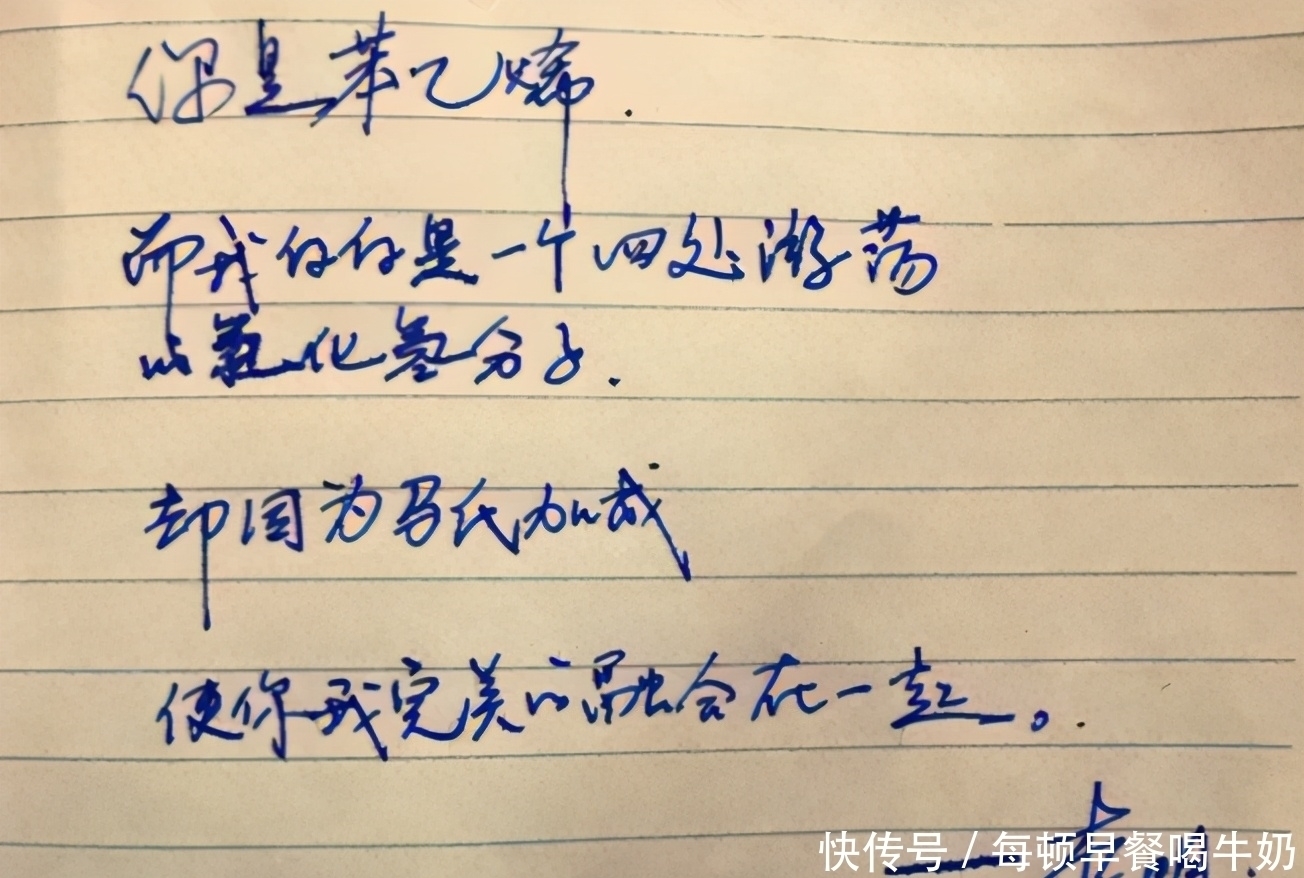 你是苯乙烯.
而我仅仅是一个四处游荡
的氯化氢分子.
却因为马氏加成
使你我完美的融合在一起。.
快传号 / 每顿早餐喝牛奶